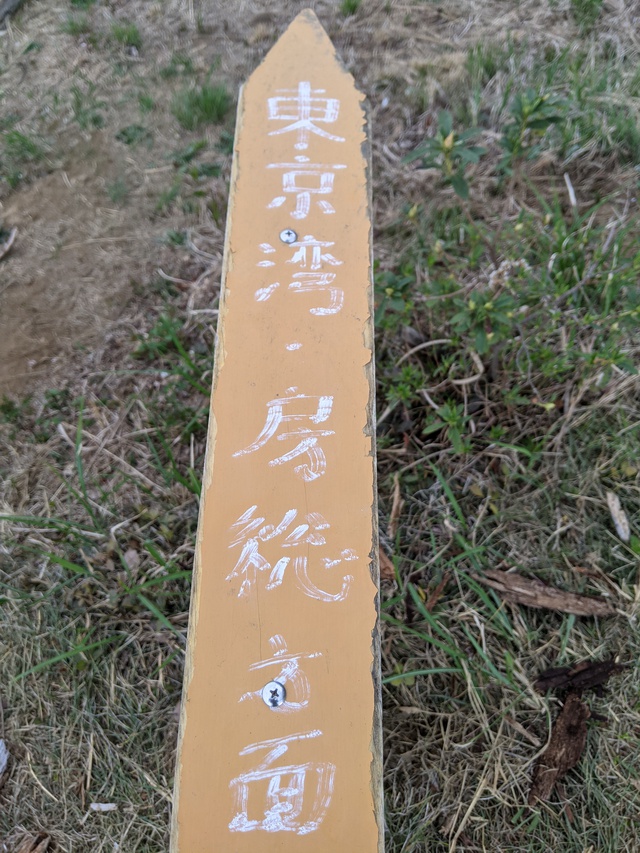 東京湾・房総方面